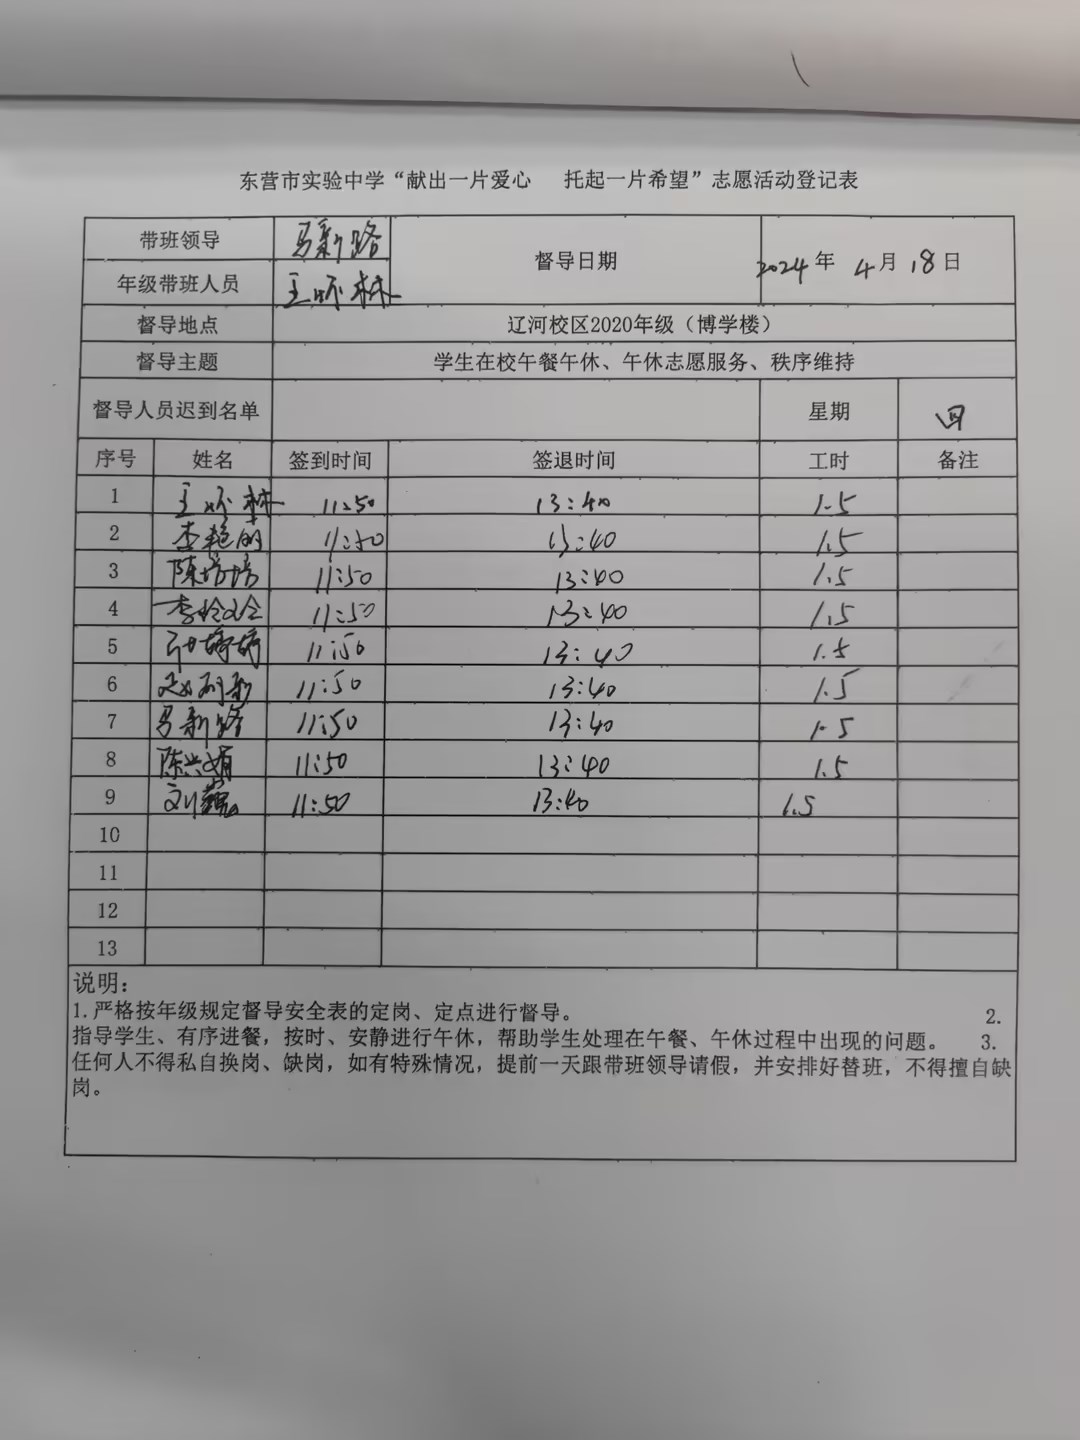 东营市实验中学“献出一片爱心 托起一片希望”志愿活动登记表
带班领导 马新路 督导日期 2024年 4月 18日
年级带班人员 王 林
督导地点 辽河校区2020年级（博学楼）
督导主题 学生在校午餐午休、午休志愿服务、秩序维持
督导人员迟到名单 星期 四
序号 姓名 签到时间 签退时间 工时 备注
1 王 林 11:50 13:40 1.5
2 李艳丽 11:50 13:40 1.5
3 陈培培 11:50 13:40 1.5
4 李 11:50 13:40 1.5
5 孙婷婷 11:50 13:40 1.5
6 赵 11:50 13:40 1.5
7 马新路 11:50 13:40 1.5
8 陈兴娟 11:50 13:40 1.5
9 刘巍 11:50 13:40 1.5
10
11
12
13
说明：
1.严格按年级规定督导安全表的定岗、定点进行督导。 2.
指导学生、有序进餐，按时、安静进行午休，帮助学生处理在午餐、午休过程中出现的问题。 3.
任何人不得私自换岗、缺岗，如有特殊情况，提前一天跟带班领导请假，并安排好替班，不得擅自缺
岗。